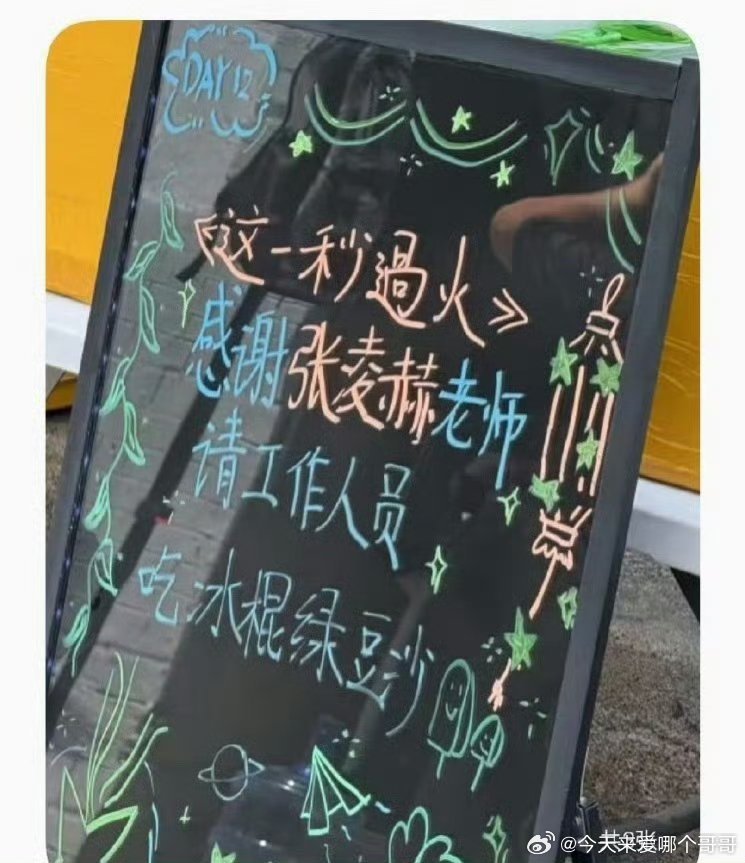 DAY 12
《这一秒過火》
感谢张凌赫老师
请工作人员
吃冰棍绿豆沙
共9张
@今天来爱哪个哥哥